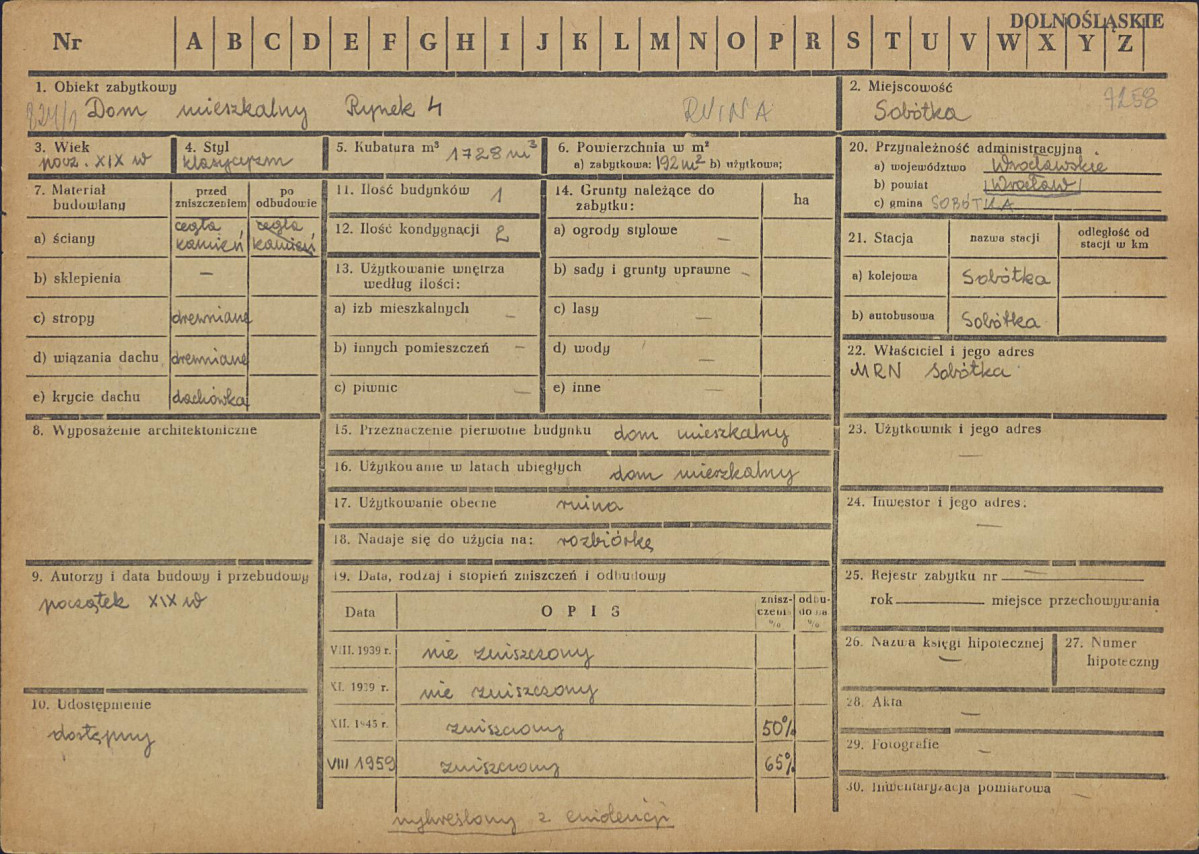 DOLNOŚLĄSKIE
Nr A B C D E F G H I J K L M N O P R S T U V W X Y Z
1. Obiekt zabytkowy
824/1 Dom mieszkalny Rynek 4 RUINA
2. Miejscowość
Sobótka 7258
3. Wiek
pocz. XIX w
4. Styl
klasycyzm
5. Kubatura m³ 1728 m³
6. Powierzchnia w m²
a) zabytkowa: 192 m² b) użytkowa;
7. Materiał budowlany
przed zniszczeniem
po odbudowie
a) ściany cegła kamień cegła kamień
b) sklepienia –
c) stropy drewniane
d) wiązania dachu drewniane
e) krycie dachu dachówka
8. Wyposażenie architektoniczne
9. Autorzy i data budowy i przebudowy
początek XIX w
10. Udostępnienie
dostępny
11. Ilość budynków 1
12. Ilość kondygnacji 2
13. Użytkowanie wnętrza
według ilości:
a) izb mieszkalnych –
b) innych pomieszczeń –
c) piwnic –
14. Grunty należące do
zabytku: ha
a) ogrody stylowe –
b) sady i grunty uprawne –
c) lasy –
d) wody –
e) inne –
15. Przeznaczenie pierwotne budynku dom mieszkalny
16. Użytkowanie w latach ubiegłych dom mieszkalny
17. Użytkowanie obecne ruina
18. Nadaje się do użycia na: rozbiórkę
19. Data, rodzaj i stopień zniszczeń i odbudowy
Data OPIS zniszczenia % odbudowa %
VIII. 1939 r. nie zniszczony
XI. 1939 r. nie zniszczony
XII. 1945 r. zniszczony 50%
VIII 1959 zniszczony 65%
wykreślony z ewidencji
20. Przynależność administracyjna
a) województwo Wrocławskie
b) powiat Wrocław
c) gmina SOBÓTKA
21. Stacja nazwa stacji odległość od stacji w km
a) kolejowa Sobótka
b) autobusowa Sobótka
22. Właściciel i jego adres
MRN Sobótka
23. Użytkownik i jego adres
–
24. Inwestor i jego adres.
–
25. Rejestr zabytku nr –
rok miejsce przechowywania
26. Nazwa księgi hipotecznej
–
27. Numer
hipoteczny
28. Akta
–
29. Fotografie
–
30. Inwentaryzacja pomiarowa
–